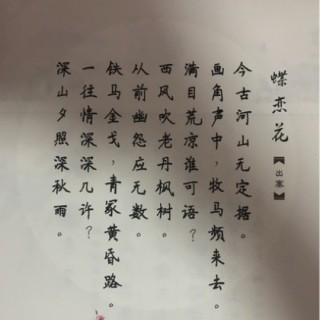 蝶恋花
【出塞】
今古河山无定据。
画角声中，牧马频来去。
满目荒凉谁可语？
西风吹老丹枫树。
从前幽怨应无数。
铁马金戈，青冢黄昏路。
一往情深深几许？
深山夕照深秋雨。